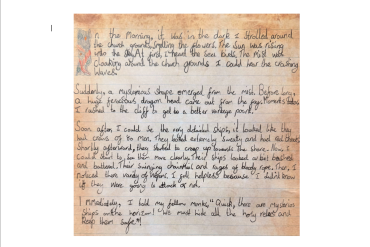 In the morning, it was in the dark I strolled around
the church grounds, smelling the flowers. The sun was rising
into the first I heard the sea birds. The mist was
cloaking around the church grounds I could hear the crashing
waves.
Suddenly, a mysterious shape emerged from the mist. Before long,
a huge ferocious dragon head came out from the fog. Moments later,
I rushed to the cliff to get to a better vantage point.
Soon after, I could see the very detailed ships, it looked like they
had crews of 60 men. They looked extremely sweaty and had
Shortly afterward, they started to creep up towards the shore. Now, I
could start to see them more clearly. Their ships looked
and battered. Their swinging and of bloody Then, I
noticed there variety of weapons. I felt helpless because I didn't know
if they were going to attack or not.
Immediately, I told my fellow monks, "Quick, there are mysterious
ships on the horizon! We must hide all the holy relics and
keep them safe."!